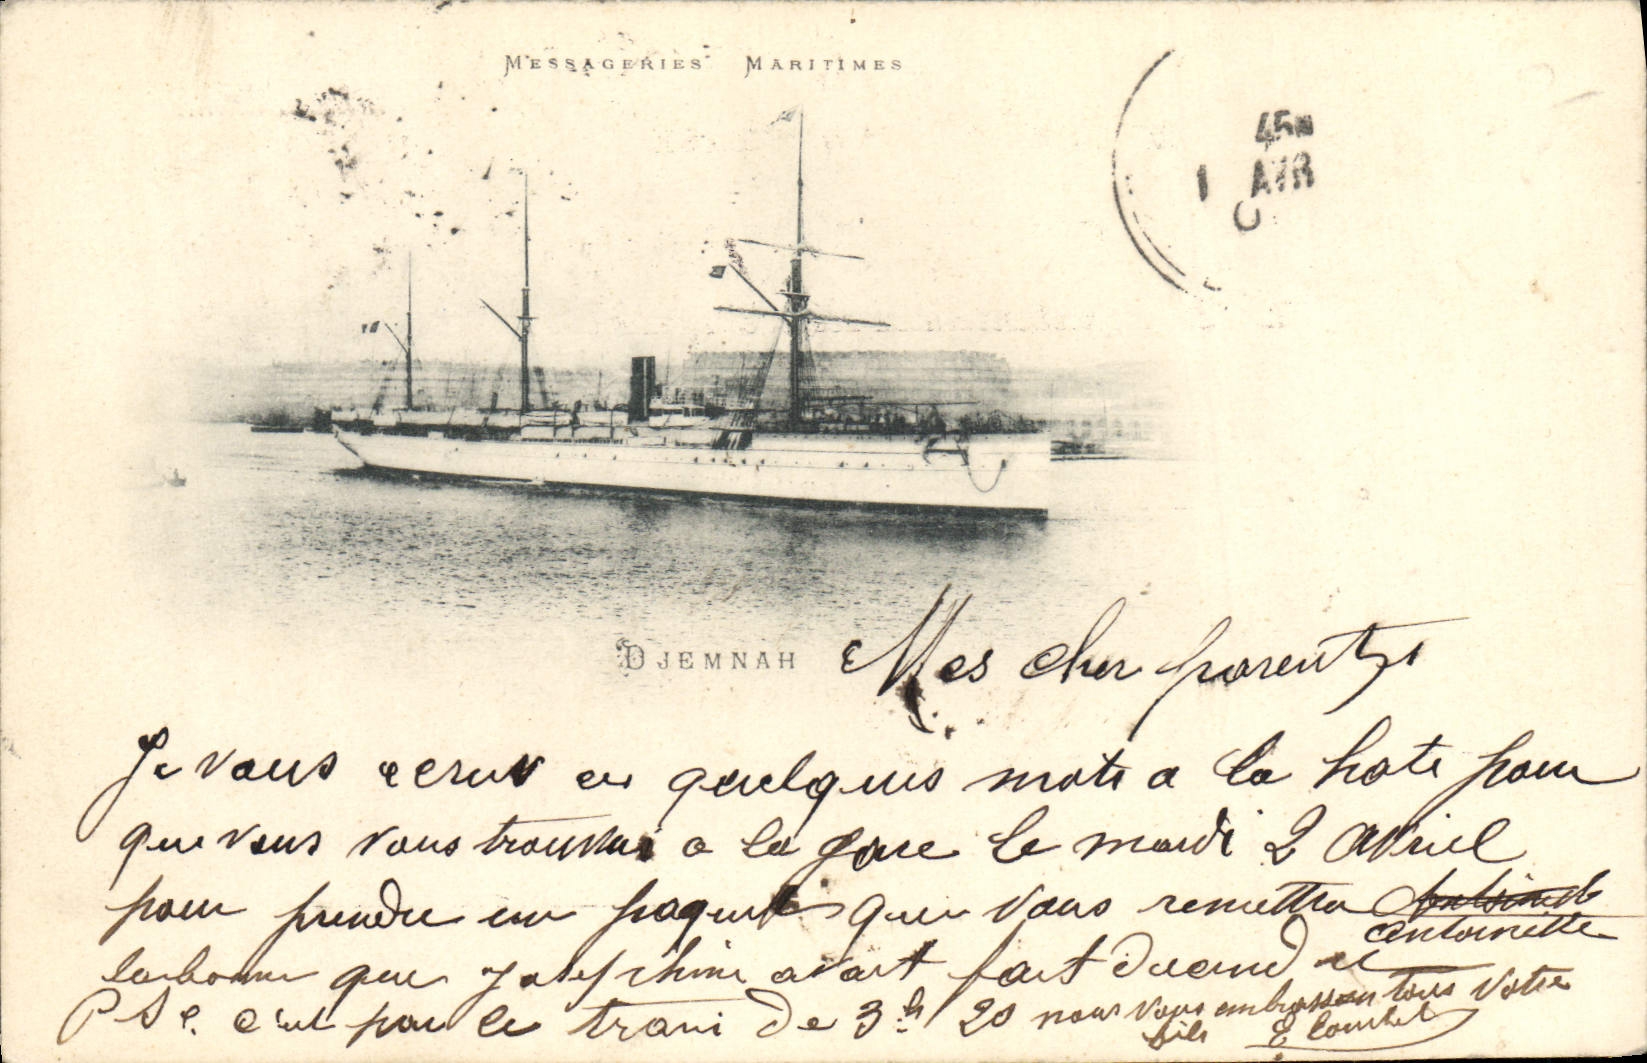 MESSAGERIES MARITIMES
45
1 AVR
DJEMNAH
Mes cher parents
Je vous ecrus ces quelques mots a la hate pour
que vous vous trouvui a la gare le mardi 2 Avriel
pour prendre un paquet que vous remettra
antoinette
la bonne que Josephine avait fait decendre
P S e. c'est par le train de 3 h 20 nous vous embrassons tous Votre
fils E